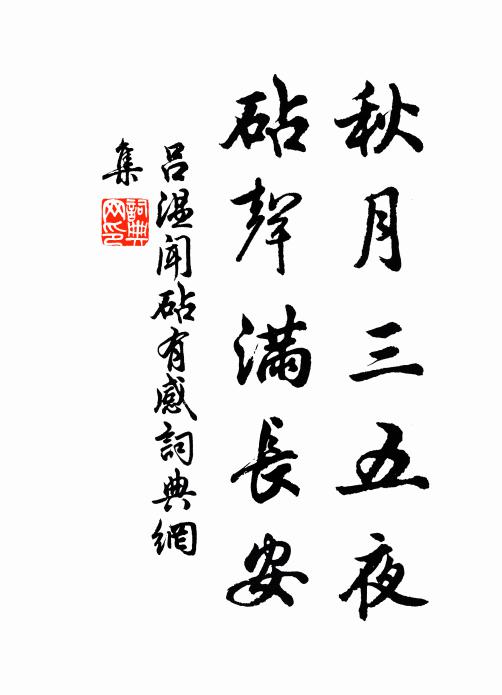 秋月三五夜
砧聲滿長安
吕溫聞砧有感詞典網
集
詞典
网印